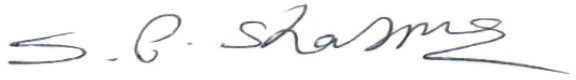 S. P. Sharma